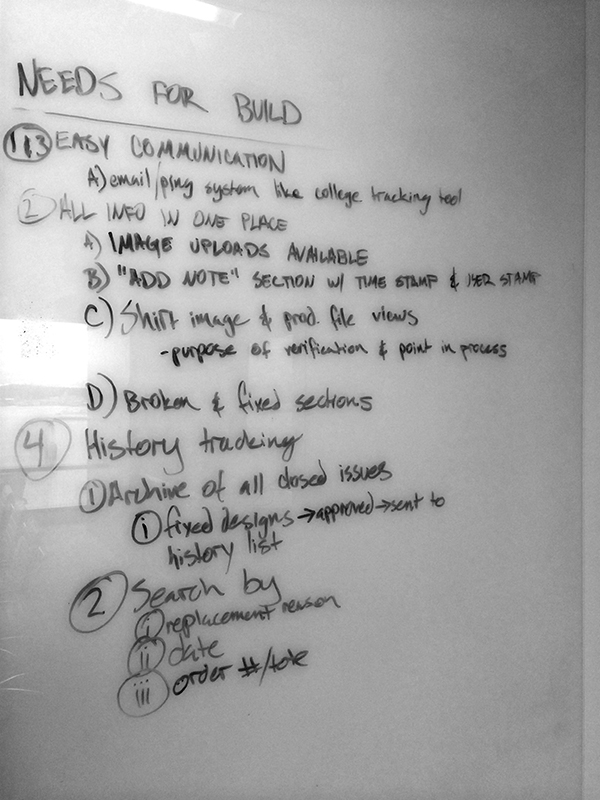 NEEDS FOR BUILD
1&3 EASY COMMUNICATION
A) email/ping system like college tracking tool
2 ALL INFO IN ONE PLACE
A) IMAGE UPLOADS AVAILABLE
B) "ADD NOTE" SECTION W/ TIME STAMP & USER STAMP
C) Shirt image & prod. file views
-purpose of verification & point in process
D) Broken & fixed sections
4 History tracking
1 Archive of all closed issues
i fixed designs → approved → sent to
history list
2 Search by
i replacement reason
ii date
iii order #/tote